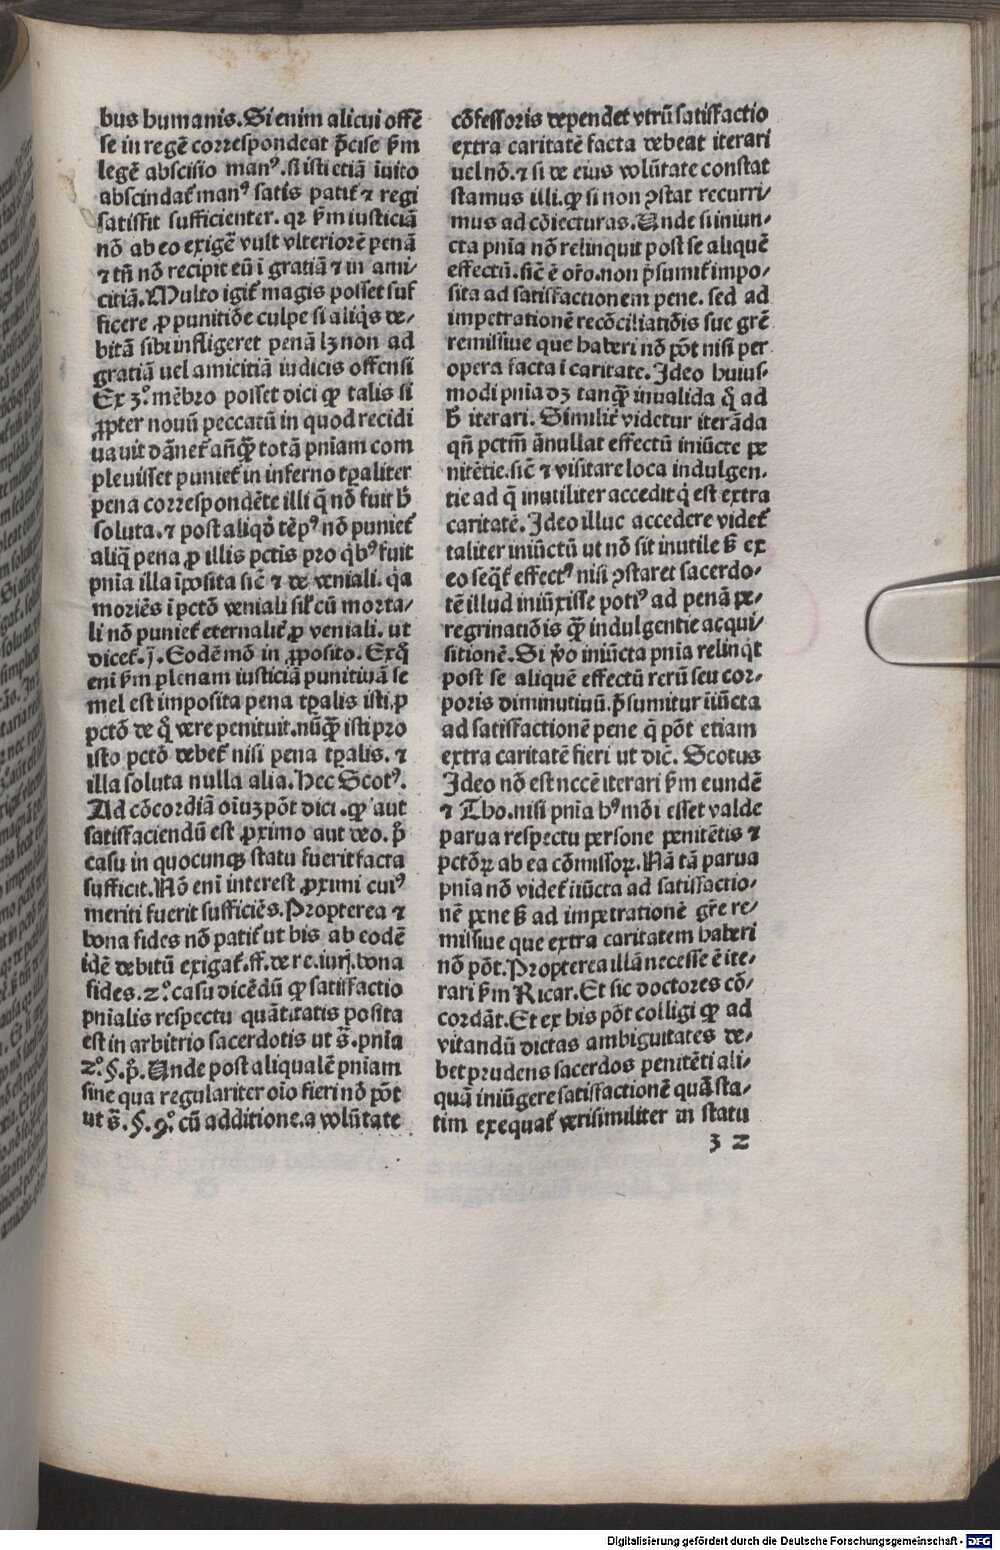 bus humanis. Si enim alicui offē
se in regē correspondeat p̄cise ẜm
legē abscisio manꝰ. si isti etiā īuito
abscindat̉ manꝰ satis patit̉ ⁊ regi
satisfit sufficienter. qꝛ ẜm iusticiā
nō ab eo exigē vult vlteriorē penā
⁊ tn̄ nō recipit eū ī gratiā ⁊ in ami⸗
citiā. Multo igit̉ magis posset suf
ficere ꝓ punitiōe culpe si aliq̇s de⸗
bitā sibi infligeret penā lꝫ non ad
gratiā uel amicitiā iudicis offensi
Ex ʒ.º mēbro posset dici ꝙ talis si
ꝓpter nouū peccatū in quod recidi
uauit dānet̉ an̄q̄ꝫ totā pniam com
pleuisset puniet̉ in inferno tp̄aliter
pena correspondēte illi q̄ nō fuit h̄
soluta. ⁊ post aliqō tēpꝰ nō puniet̉
aliq̄ pena ꝓ illis pctis pro q̇bꝰ fuit
pnia illa īposita sic̄ ⁊ de veniali. q̇a
moriēs ī pctō veniali sil̉ cū morta⸗
li nō puniet̉ eternalit̉ ꝓ veniali. ut
dicet̉. j̄. Eodē mō in ꝓposito. Exq̄
eni ẜm plenam iusticiā punitiuā se
mel est imposita pena tp̄alis isti. ꝓ
pctō de q̊ vere penituit. nūq̄ꝫ isti pro
isto pctō debet̉ nisi pena tp̄alis. ⁊
illa soluta nulla alia. hec Scotꝰ.
Ad cōcordiā oiuꝫ pōt dici. ꝙ aut
satisfaciendū est ꝓximo aut deo. p̄
casu in quocunqꝫ statu fuerit facta
sufficit. Nō eni interest ꝓximi cuiꝰ
meriti fuerit sufficiēs. Propterea ⁊
bona fides nō patit̉ ut bis ab eodē
idē debitū exigat̉. ff. de re. iurj. bona
fides. 2.º casu dicēdū ꝙ satisfactio
pnialis respectu quātitatis posita
est in arbitrio sacerdotis ut s̄. pnia
2.º §. p̄. Unde post aliqualē pniam
sine qua regulariter oīo fieri nō pōt
ut s̄. §. 9.º cū additione. a volūtate
cōfessoris dependet vtrū satisfactio
extra caritatē facta debeat iterari
uel nō. ⁊ si de eius volūtate constat
stamus illi. ꝙ si non ꝯstat recurri⸗
mus ad cōiecturas. Unde si iniun⸗
cta pnia nō relinquit post se aliquē
effectū. sic̄ ē or̄o. non p̄sumit̉ impo⸗
sita ad satisfactionem pene. sed ad
impetrationē recōciliatiōis sue gr̄e
remissiue que haberi nō pōt nisi per
opera facta ī caritate. Ideo huius⸗
modi pnia dꝫ tanq̄ꝫ inualida q̊ ad
h̄ iterari. Similit̉ videtur iterāda
qn̄ pctm̄ ānullat effectū iniūcte pe
nitētie. sic̄ ⁊ visitare loca indulgen⸗
tie ad q̄ inutiliter accedit q̇ est extra
caritatē. Ideo illuc accedere videt̉
taliter iniūctū ut nō sit inutile ẜ ex
eo seq̄t̉ effectꝰ nisi ꝯstaret sacerdo⸗
tē illud iniūxisse potiꝰ ad penā pe⸗
regrinatiōis q̄ꝫ indulgentie acqui⸗
sitionē. Si v̊o iniūcta pnia relinq̇t
post se aliquē effectū rerū seu cor⸗
poris diminutiuū. p̄sumitur iiūcta
ad satisfactionē pene q̄ pōt etiam
extra caritatē fieri ut dic̄. Scotus
Ideo nō est nccē iterari ẜm eundē
⁊ Tho. nisi pnia hꝰ mōi esset valde
parua respectu persone penitētis ⁊
pctōꝝ ab ea cōmissoꝝ. Nā tā parua
pnia nō videt̉ iiūcta ad satisfactio⸗
nē pene ẜ ad impetrationē gr̄e re⸗
missiue que extra caritatem haberi
nō pōt. Propterea illā necesse ē ite⸗
rari ẜm Ricar. Et sic doctores cō⸗
cordāt. Et ex his pōt colligi ꝙ ad
vitandū dictas ambiguitates de⸗
bet prudens sacerdos penitēti ali⸗
quā iniūgere satisfactionē quā sta⸗
tim exequat̉ verisimiliter in statu
ʒ 2
Digitalisierung gefördert durch die Deutsche Forschungsgemeinschaft - DFG